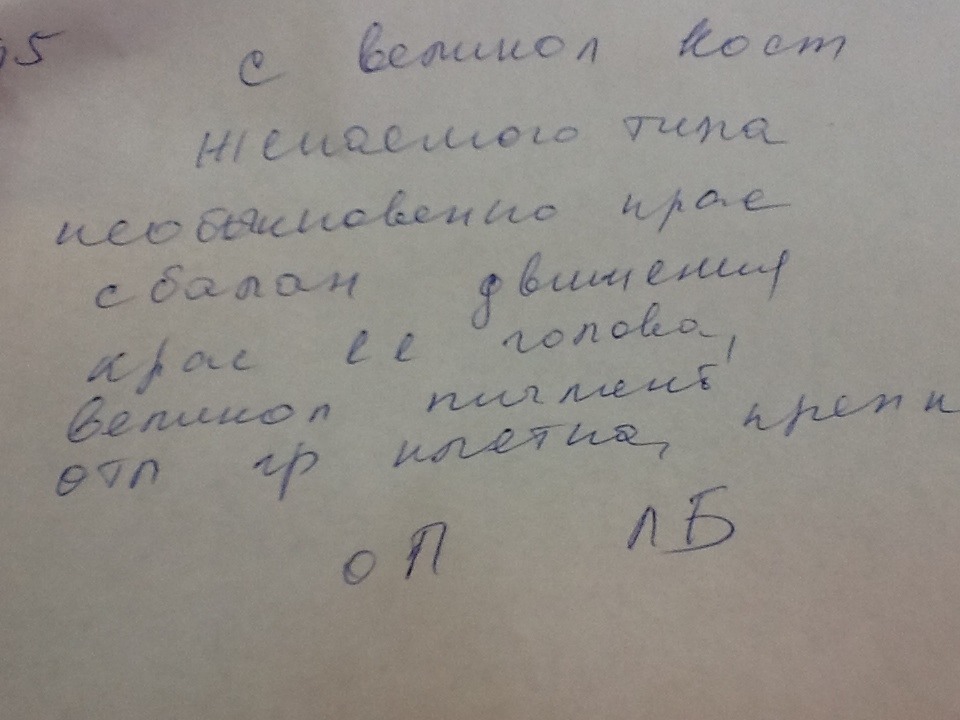 5 с великол кост
желаемого типа
необыкновенно крас
сбалан движения
крас ее голова,
великол пигмент
отл гр клетка, крепк
оП ЛБ